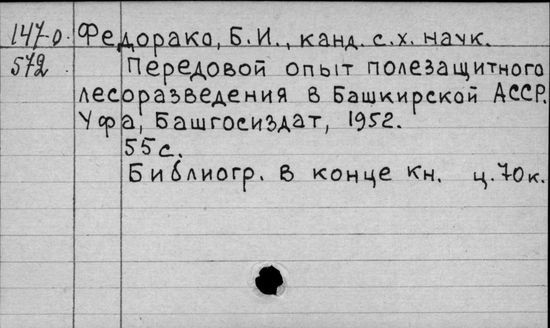 147-0. Федорако, Б.И., канд. с.х. наук.
572 Передовой опыт полезащитного
лесоразведения в Башкирской АССР.
Уфа, Башгосиздат, 1952.
55с.
Библиогр. в конце кн. ц.70к.